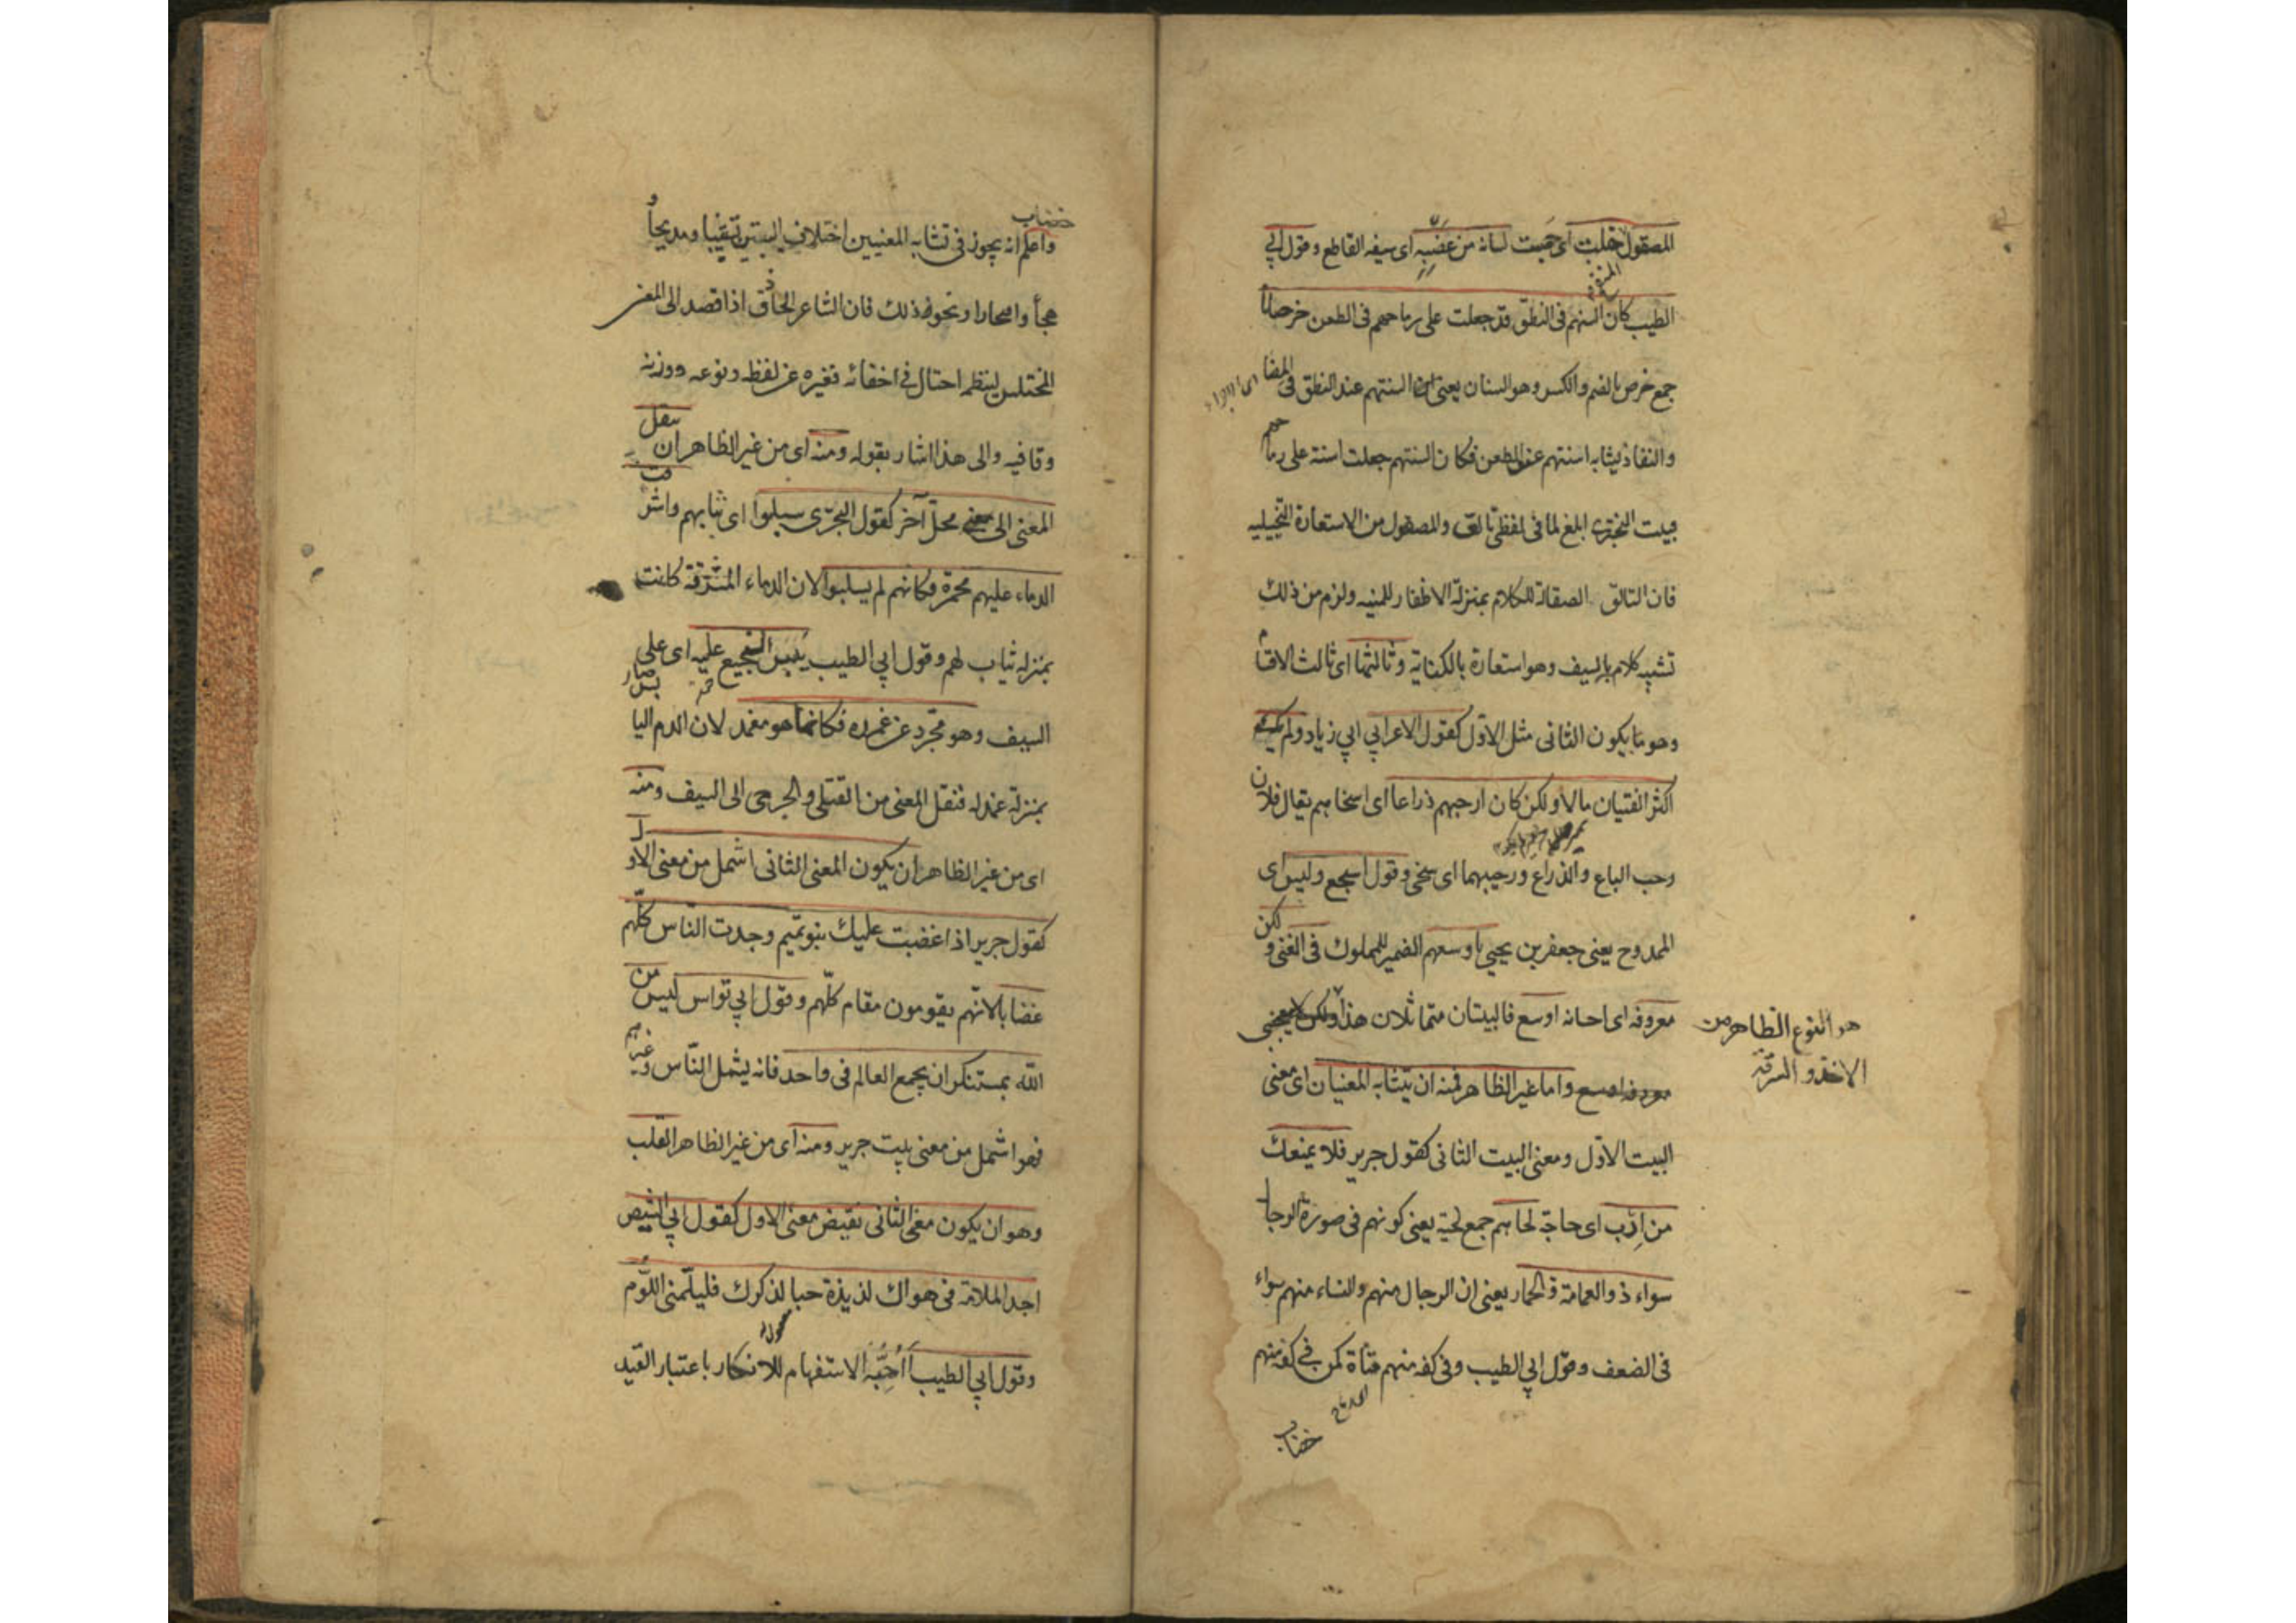 المصقول خلت اى حسبت لسانه من عضبه اى سيفه القاطع وقول ابى
الطيب كان السنهم فى النطق قد جعلت على رماحهم فى الطعن خرصانا
جمع خرص بالضم والكسر وهو السنان يعنى ان السنتهم عند النطق فى المضا
والنفاذ يشابه اسنتهم عند الطعن فكان السنتهم جعلت اسنة على رماحهم
فبيت البحترى ابلغ لما فى لفظى تالق والمصقول من الاستعارة التخييليه
فان التالق الصقالة للكلام بمنزلة الاظفار للمنيه ولزم من ذلك
تشبيه كلام بالسيف وهو استعارة بالكناية وثالثها اى ثالث الاقسام
وهو ما يكون الثانى مثل الاول كقول الاعرابي ابي زياد ولم يك
اكثر الفتيان مالا ولكن كان ارحبهم ذراعا اى اسخاهم يقال فلان
رحب الباع والذراع ورحيبهما اى سخى وقول اشجع وليس اى
الممدوح يعنى جعفر بن يحيى باوسعهم الضمير للملوك فى الغنى ولكن
معروفه اى احسانه اوسع فالبيتان متماثلان هذا
هو النوع الظاهر من
الاخذ والسرقة
واما غير الظاهر فمنه ان يتشابه المعنيان اى معنى
البيت الاول ومعنى البيت الثانى كقول جرير فلا يمنعك
من ارب اى حاجة لحاهم جمع لحية يعنى كونهم فى صورة الرجال
سواء ذو العمامة والخمار يعنى ان الرجال منهم والنساء منهم سواء
فى الضعف وقول ابي الطيب وفى كفه منهم قناة كمن فى كفه منهم
خضاب
خضاب
واعلم انه يجوز فى تشابه المعنيين اختلاف البيتين تشبيبا ومديحا و
هجأ وافتخارا ونحو ذلك فان الشاعر الحاذق اذا قصد الى المعنى
المختلس لينظمه احتال فى اخفائه فغيره عن لفظه ونوعه ووزنه
وقافيه والى هذا اشار بقوله ومنه اى من غير الظاهر ان ينقل
المعنى الى محل آخر كقول البحترى سلبوا اى ثيابهم واشرقت
الدماء عليهم محمرة فكانهم لم يسلبوا لان الدماء المشرقة كانت
بمنزله ثياب لهم وقول ابي الطيب يبس النجيع عليه اى على
السيف وهو مجرد عن غمده فكانما هو مغمد لان الدم اليابس صار
بمنزلة غمد له فنقل المعنى من القتلى والجرحى الى السيف ومنه
اى من غير الظاهر ان يكون المعنى الثانى اشمل من معنى الاول
كقول جرير اذا غضبت عليك بنو تميم وجدت الناس كلهم
غضابا لانهم يقومون مقام كلهم وقول ابي نواس ليس من
الله بمستنكر ان يجمع العالم فى واحد فانه يشمل الناس وغيرهم
فهو اشمل من معنى بيت جرير ومنه اى من غير الظاهر القلب
وهو ان يكون معنى الثانى نقيض معنى الاول كقول ابي الشيص
اجد الملامة فى هواك لذيذة حبا لذكرك فليلمنى اللوم
وقول ابي الطيب أأحبه الاستفهام للانكار باعتبار القيد